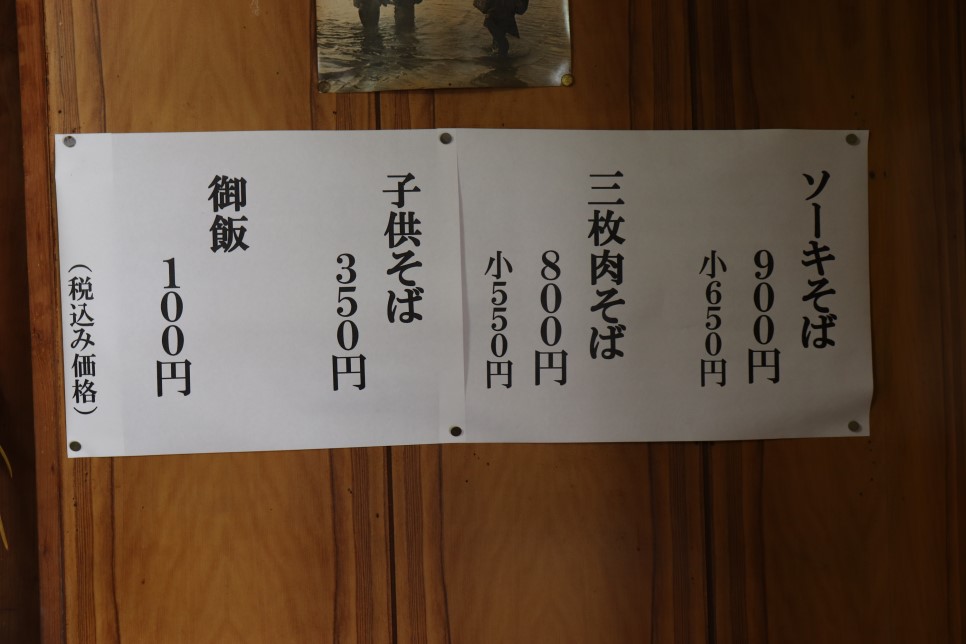 ソーキそば
900円
小650円
三枚肉そば
800円
小550円
子供そば
350円
御飯
100円
（税込み価格）